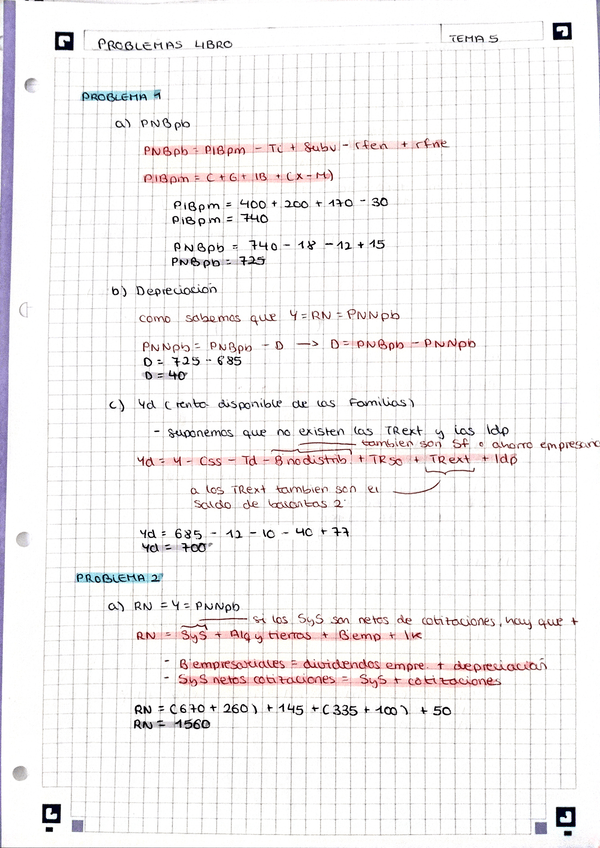 PROBLEMAS LIBRO
TEMA 5
PROBLEMA 1
a) PNBpb
PNBpb = PIBpm - Ti + Subv - rfen + rfne
PIBpm = C + G + IB + (X - M)
PIBpm = 400 + 200 + 170 - 30
PIBpm = 740
PNBpb = 740 - 18 - 12 + 15
PNBpb = 725
b) Depreciación
como sabemos que Y = RN = PNNpb
PNNpb = PNBpb - D → D = PNBpb - PNNpb
D = 725 - 685
D = 40
c) Yd (renta disponible de las Familias)
- suponemos que no existen las TRext y las Idp
también son Sf o ahorro empresaria
Yd = Y - Css - Td - Bnodistrib + TRso + TRext + Idp
a los TRext también son el
saldo de balanzas 2
Yd = 685 - 12 - 10 - 40 + 77
Yd = 700
PROBLEMA 2
a) RN = Y = PNNpb
si los SyS son netos de cotizaciones, hay que +
RN = SyS + Alq y tierras + Bemp + Ik
- B empresariales = dividendos empre. + depreciación
- SyS netos cotizaciones = SyS + cotizaciones
RN = (670 + 260) + 145 + (335 + 100) + 50
RN = 1560